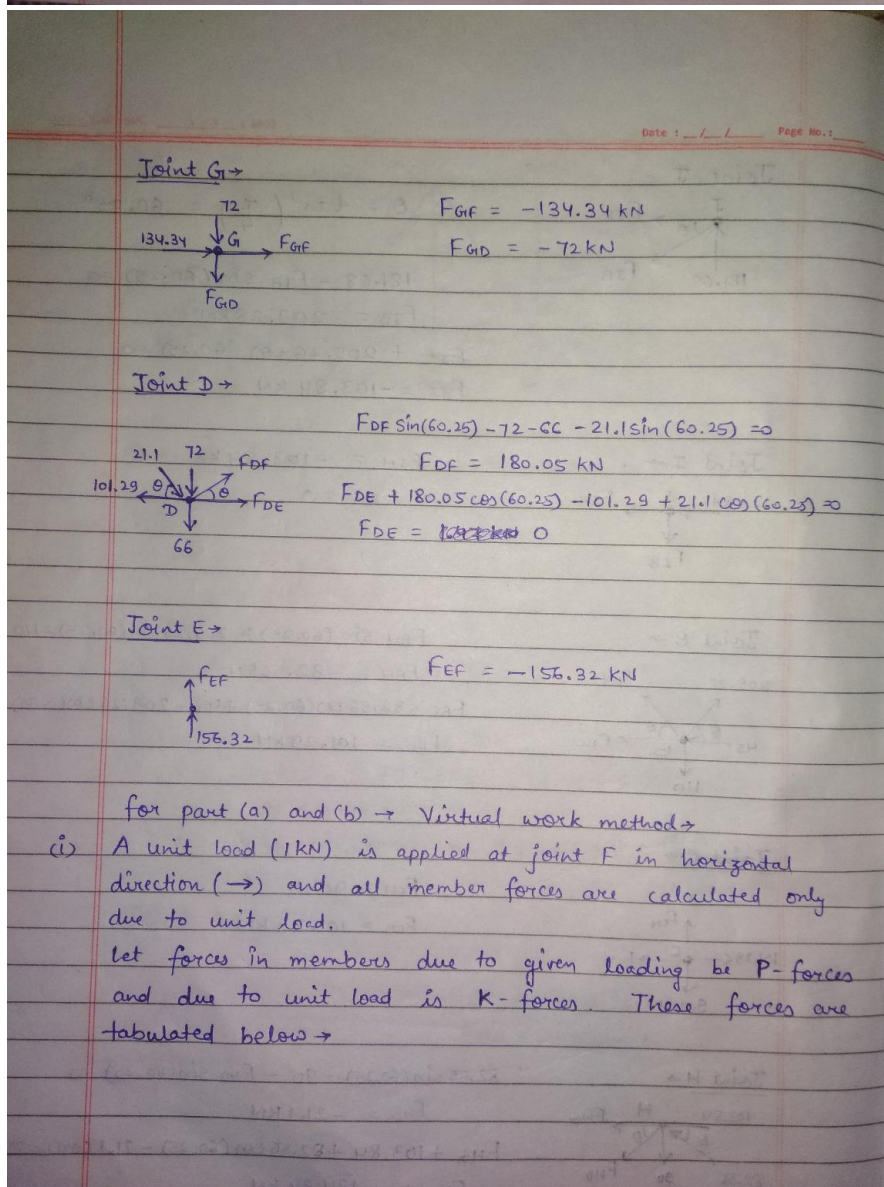 Date : __/__/__ Page No.:
Joint G→
72
134.34 G F_GF
F_GD
F_GF = -134.34 kN
F_GD = -72 kN
Joint D→
F_DF Sin(60.25) -72-66 -21.1 sin(60.25) =0
F_DF = 180.05 kN
F_DE + 180.05 cos(60.25) -101.29 +21.1 cos(60.25) =0
F_DE = 0
21.1 72 F_DF
101.29 θ θ F_DE
D
66
Joint E→
F_EF
156.32
F_EF = -156.32 KN
for part (a) and (b) → Virtual work method→
(i) A unit load (1KN) is applied at joint F in horizontal
direction (→) and all member forces are calculated only
due to unit load.
Let forces in members due to given loading be P-forces
and due to unit load is K-forces. These forces are
tabulated below→